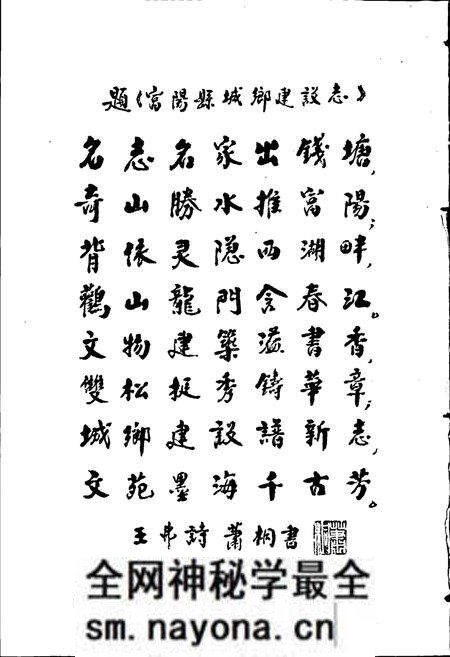 題《富陽縣城鄉建設志》
名志名家出錢塘，
奇山勝水推富陽；
背依灵隐西湖畔，
鸛山龍門含春江。
文物建築溢書香，
雙松挺秀鑄華章；
城鄉建設譜新志，
文苑墨海千古芳。
王弗詩 蕭桐書
全网神秘学最全
sm.nayona.cn